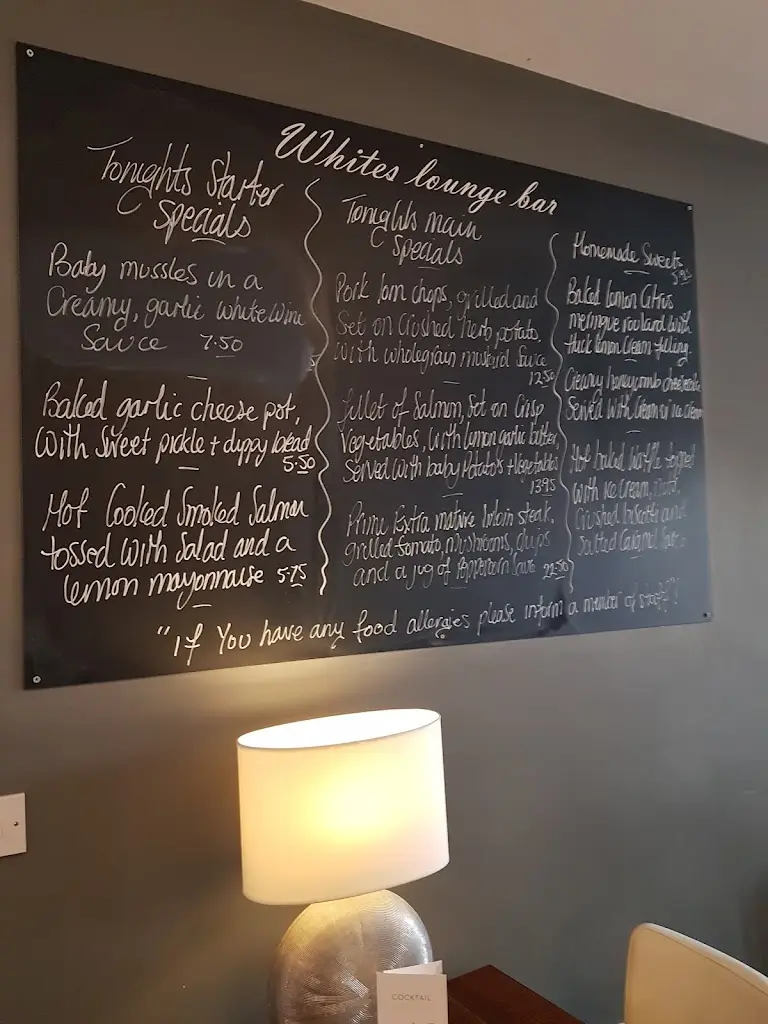 Whites' lounge bar
Tonights Starter
Specials
Baby mussles in a
Creamy, garlic white wine
Sauce 7.50
Baked garlic cheese pot,
with Sweet pickle + dippy bread
5.50
Hot Cooked Smoked Salmon
tossed with Salad and a
lemon mayonnaise 5.75
Tonights main
Specials
Pork loin chops, grilled and
Set on Crushed herb potato,
with wholegrain mustard Sauce
12.50
fillet of Salmon, Set on Crisp
vegetables, with lemon garlic butter,
Served with baby Potato's + Vegetables
13.95
Prime Extra mature Sirloin steak,
grilled tomato, mushrooms, chips
and a jug of Peppercorn Sauce 22.50
Homemade Sweets
5.95
Baked lemon Citrus
meringue roulard with
thick lemon Cream filling.
Creamy honeycomb cheesecake
Served with Cream or ice cream
Hot baked waffle topped
with ice Cream,
Crushed biscotti and
Salted Caramel Sauce
"If You have any food allergies please inform a member of staff"!
COCKTAIL